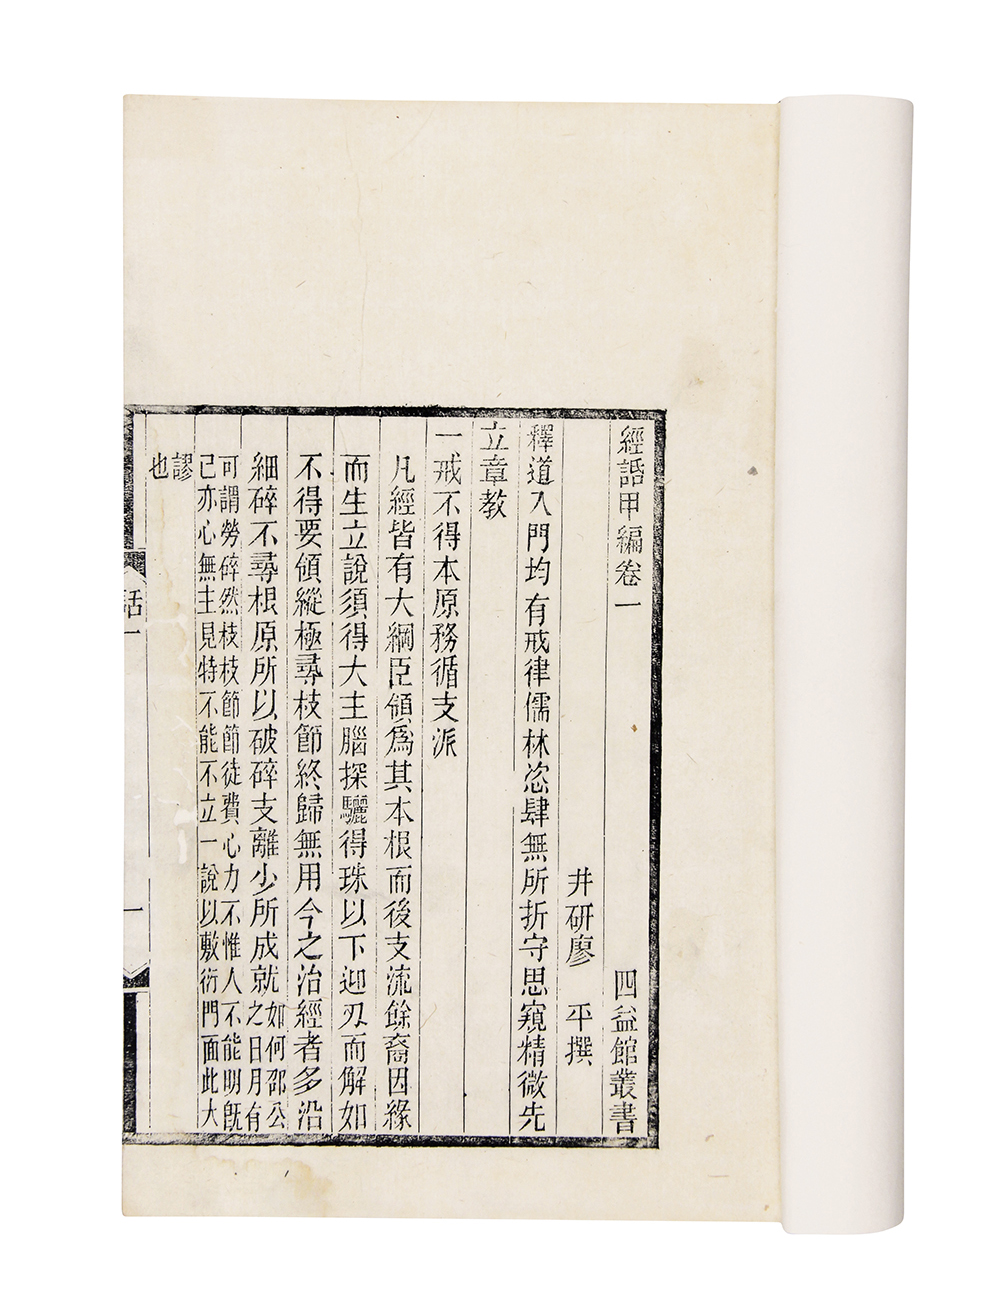 經話甲編卷一　四益館叢書
井研廖　平撰
釋道入門均有戒律儒林恣肆無所折守思窺精微先
立章教
一戒不得本原務循支派
凡經皆有大綱臣領爲其本根而後支流餘裔因緣
而生立說須得大主腦探驪得珠以下迎刃而解如
不得要領縱極尋枝節終歸無用今之治經者多沿
細碎不尋根原所以破碎支離少所成就如何邵公
之日月有
可謂勞碎然枝枝節節徒費心力不惟人不能明既
己亦心無主見特不能不立一說以敷衍門面此大
謬
也
話一
一